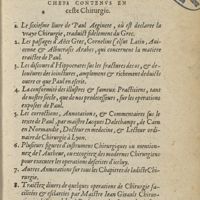 CHEFS CONTENVS EN
ceste Chirurgie.
1. Le sixiesme liure de Paul Aeginete, où est declaree la
vraye Chirurgie, traduict fidelement du Grec.
2. Les passages d'Aëce Grec, Corneline Celse Latin, Aui-
cenne & Albucrasis Arabes, qui concernent la matiere
traictee de Paul.
3. Les discours d'Hippocrates sur les fractures des os, & de-
loueures des ioinctures, amplement & richement deduicts
outre ce que Paul en escrit.
4. La conformité des illustres & fameux Practiciens, tant
de nostre siecle, que de nos predecesseurs, sur les operations
exposees de Paul.
5. Les corrections, Annotations, & Commentaires sur le
texte de Paul, par maistre Iacques Dalechamps, de Caen
en Normandie, Docteur en medecine, & Lecteur ordi-
naire de Chirurgie à Lyon.
6. Plusieurs figures d'instrumens Chirurgiques ou inuention
de l'Autheur, ou
pour executer les operations descrites d'iceluy.
7. Autres Annotations sur tous les Chapitres de ladicte Chi-
rurgie.
8. Traictez diuers de quelques operations de Chirurgie fa-
cilitees & esclarcies par Maistre Iean Girault Chirur-